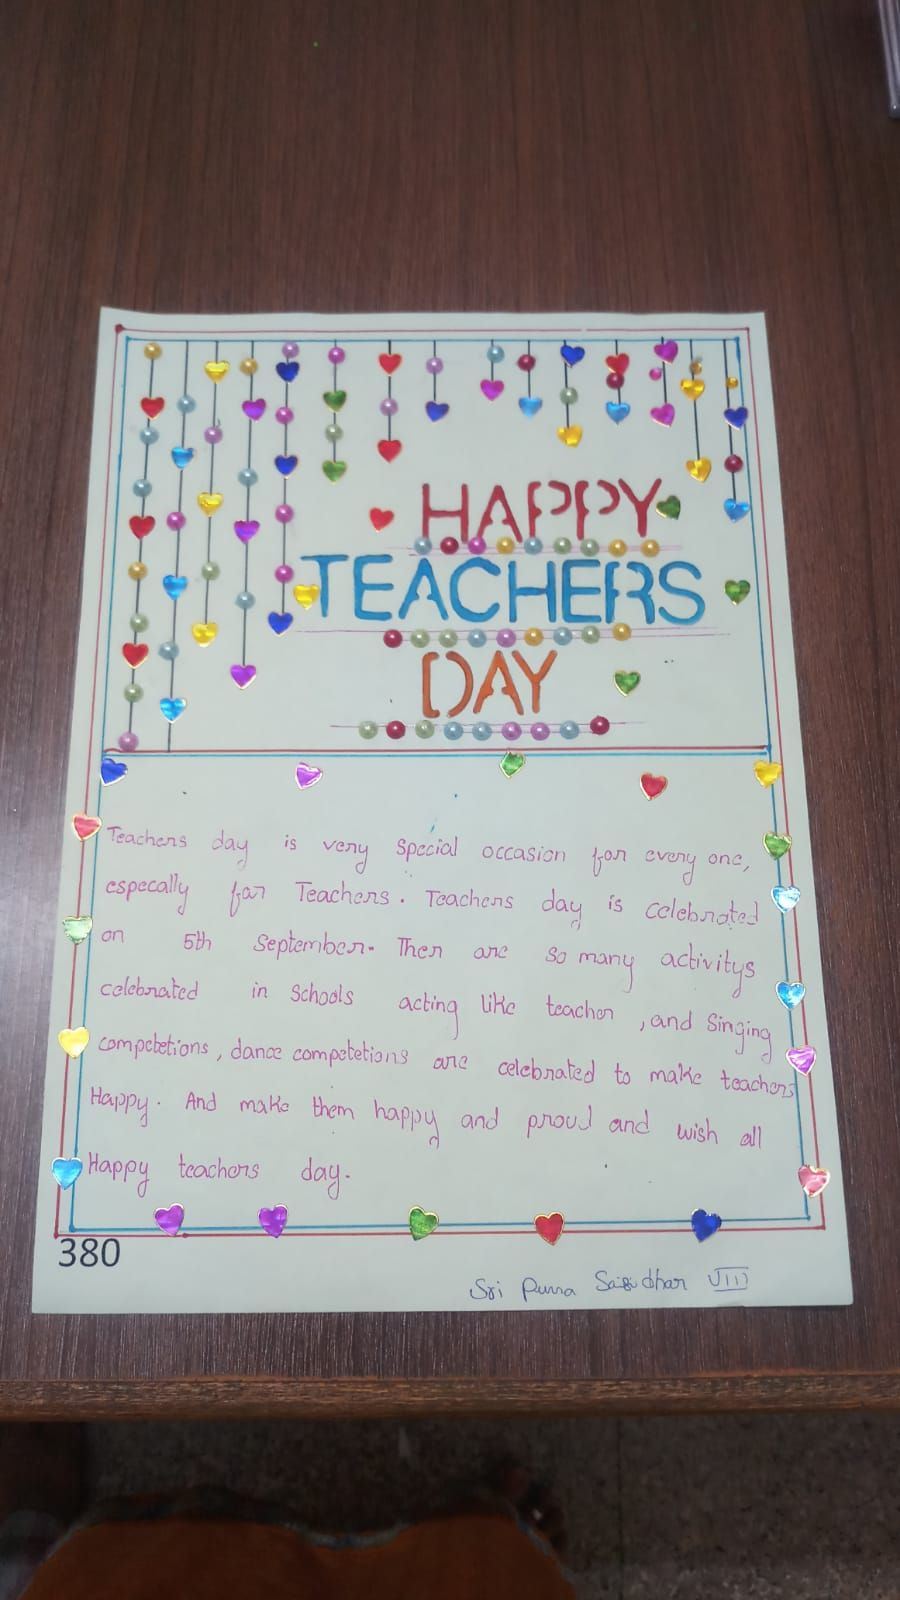 HAPPY
TEACHERS
DAY
Teachers day is very special occasion for every one,
especally for Teachers. Teachers day is celebrated
on 5th September. Ther are so many activitys
celebrated in schools acting like teacher , and Singing
competetions, dance competetions are celebrated to make teachers
Happy. And make them happy and proud and wish all
Happy teachers day.
380
Sri Purna VIII